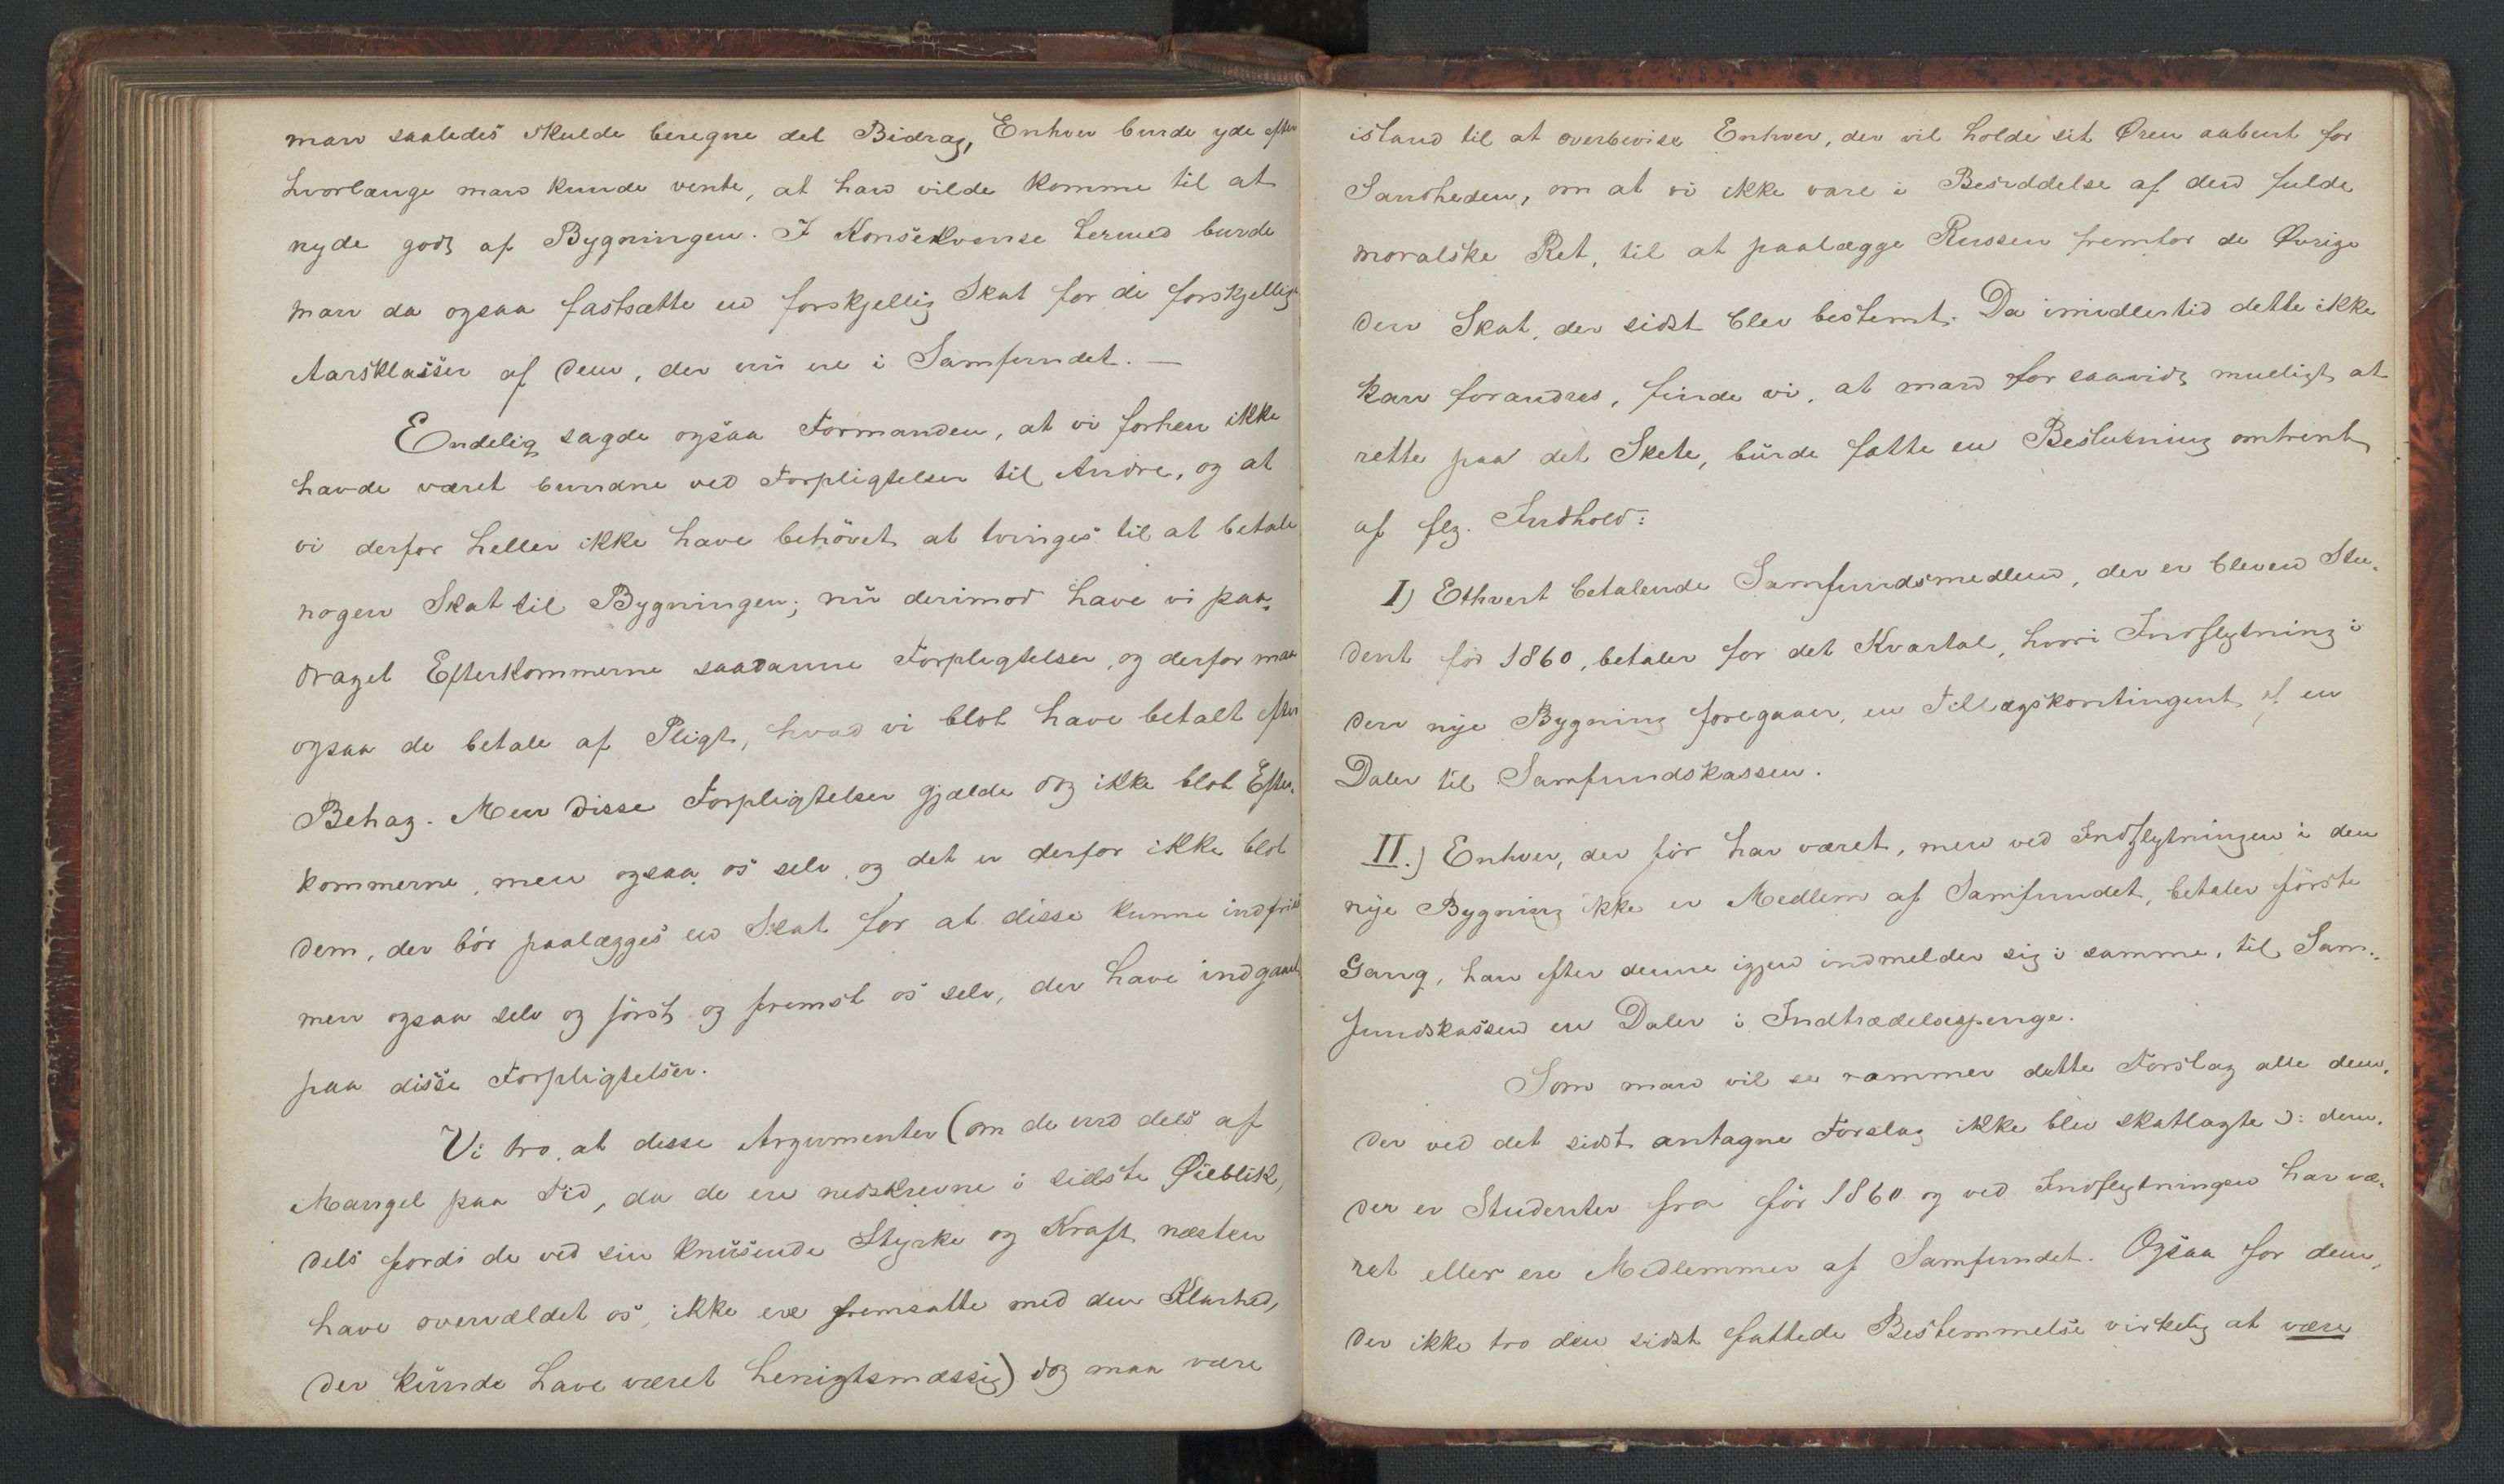 man saaledes skulde beregne det Bidrag, Enhver burde yde efter
hvorlænge man kunde vente, at han vilde komme til at
nyde godt af Bygningen. I Konsekvense hermed burde
man da ogsaa fastsætte en forskjellig Skat for de forskjellige
Aarsklasser af dem, der nu ere i Samfundet. —
Endelig sagde ogsaa Formanden, at vi forhen ikke
havde været bundne ved Forpligtelser til Andre, og at
vi derfor heller ikke have behövet at tvinges til at betale
nogen Skat til Bygningen; nu derimod have vi paa-
draget Efterkommerne saadanne Forpligtelser, og derfor maa
ogsaa de betale af Pligt, hvad vi blot have betalt efter
Behag. Men disse Forpligtelser gjælde dog ikke blot Efter-
kommerne, men ogsaa os selv, og det er derfor ikke blot
dem, der bör paalægges en Skat for at disse kunne indfries
men ogsaa selv og först og fremst os selv, der have indgaaet
paa disse Forpligtelser.
Vi tro, at disse Argumenter (om de end dels af
Mangel paa Tid, da de ere nedskrevne i sidste Øieblik,
dels fordi de ved sin knusende Styrke og Kraft næsten
have overvældet os, ikke ere fremsatte med den Klarhed,
der kunde have været henigtsmæssig) dog maa være
istand til at overbevise Enhver, der vil holde sit Øren aabent for
Sandheden, om at vi ikke vare i Besiddelse af den fulde
moralske Ret, til at paalægge Russen fremfor de Øvrige
den Skat, der sidst blev bestemt. Da imidlertid dette ikke
kan forandres, finde vi, at man for saavidt muligt at
rette paa det Skete, burde fatte en Beslutning omtrent
af flg. Indhold:
I) Ethvert betalende Samfundsmedlem, der er bleven Stu-
dent för 1860, betaler for det Kvartal, hvori Indflytning i
den nye Bygning foregaaer, en Tillægskontingent af en
Daler til Samfundskassen.
II.) Enhver, der för har været, men ved Indflytningen i den
nye Bygning ikke er Medlem af Samfundet, betaler förste
Gang, han efter denne igjen indmelder sig i samme, til Sam-
fundskassen en Daler i Indtrædelsespenge.
Som man vil se rammer dette Forslag alle dem,
der ved det sidst antagne Forslag ikke blev skatlagte ɔ: dem,
der er Studenter fra för 1860 og ved Indflytningen har væ-
ret eller ere Medlemmer af Samfundet. Ogsaa for dem,
der ikke tro den sidst fattede Bestemmelse virkelig at være